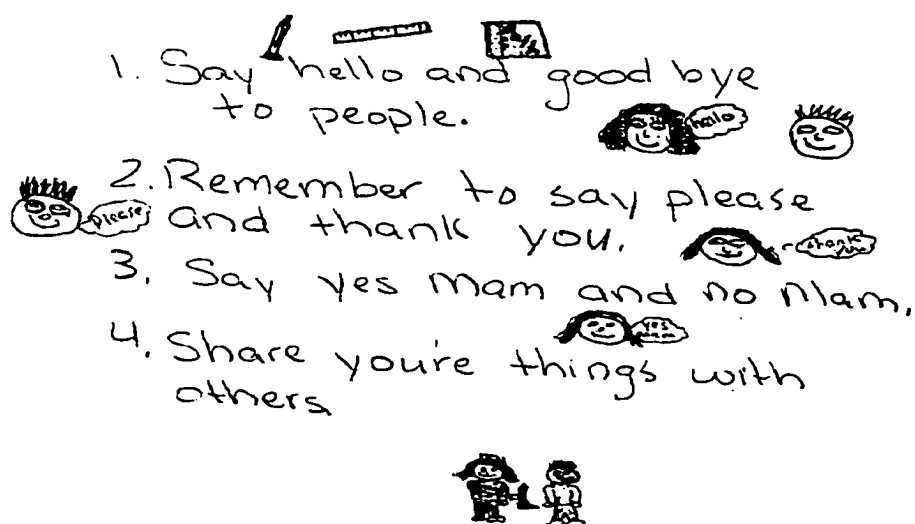 1. Say hello and good bye
to people.
hello
2. Remember to say please
and thank you.
please
thank you
3. Say yes mam and no mam.
4. Share you're things with
others
yes mam